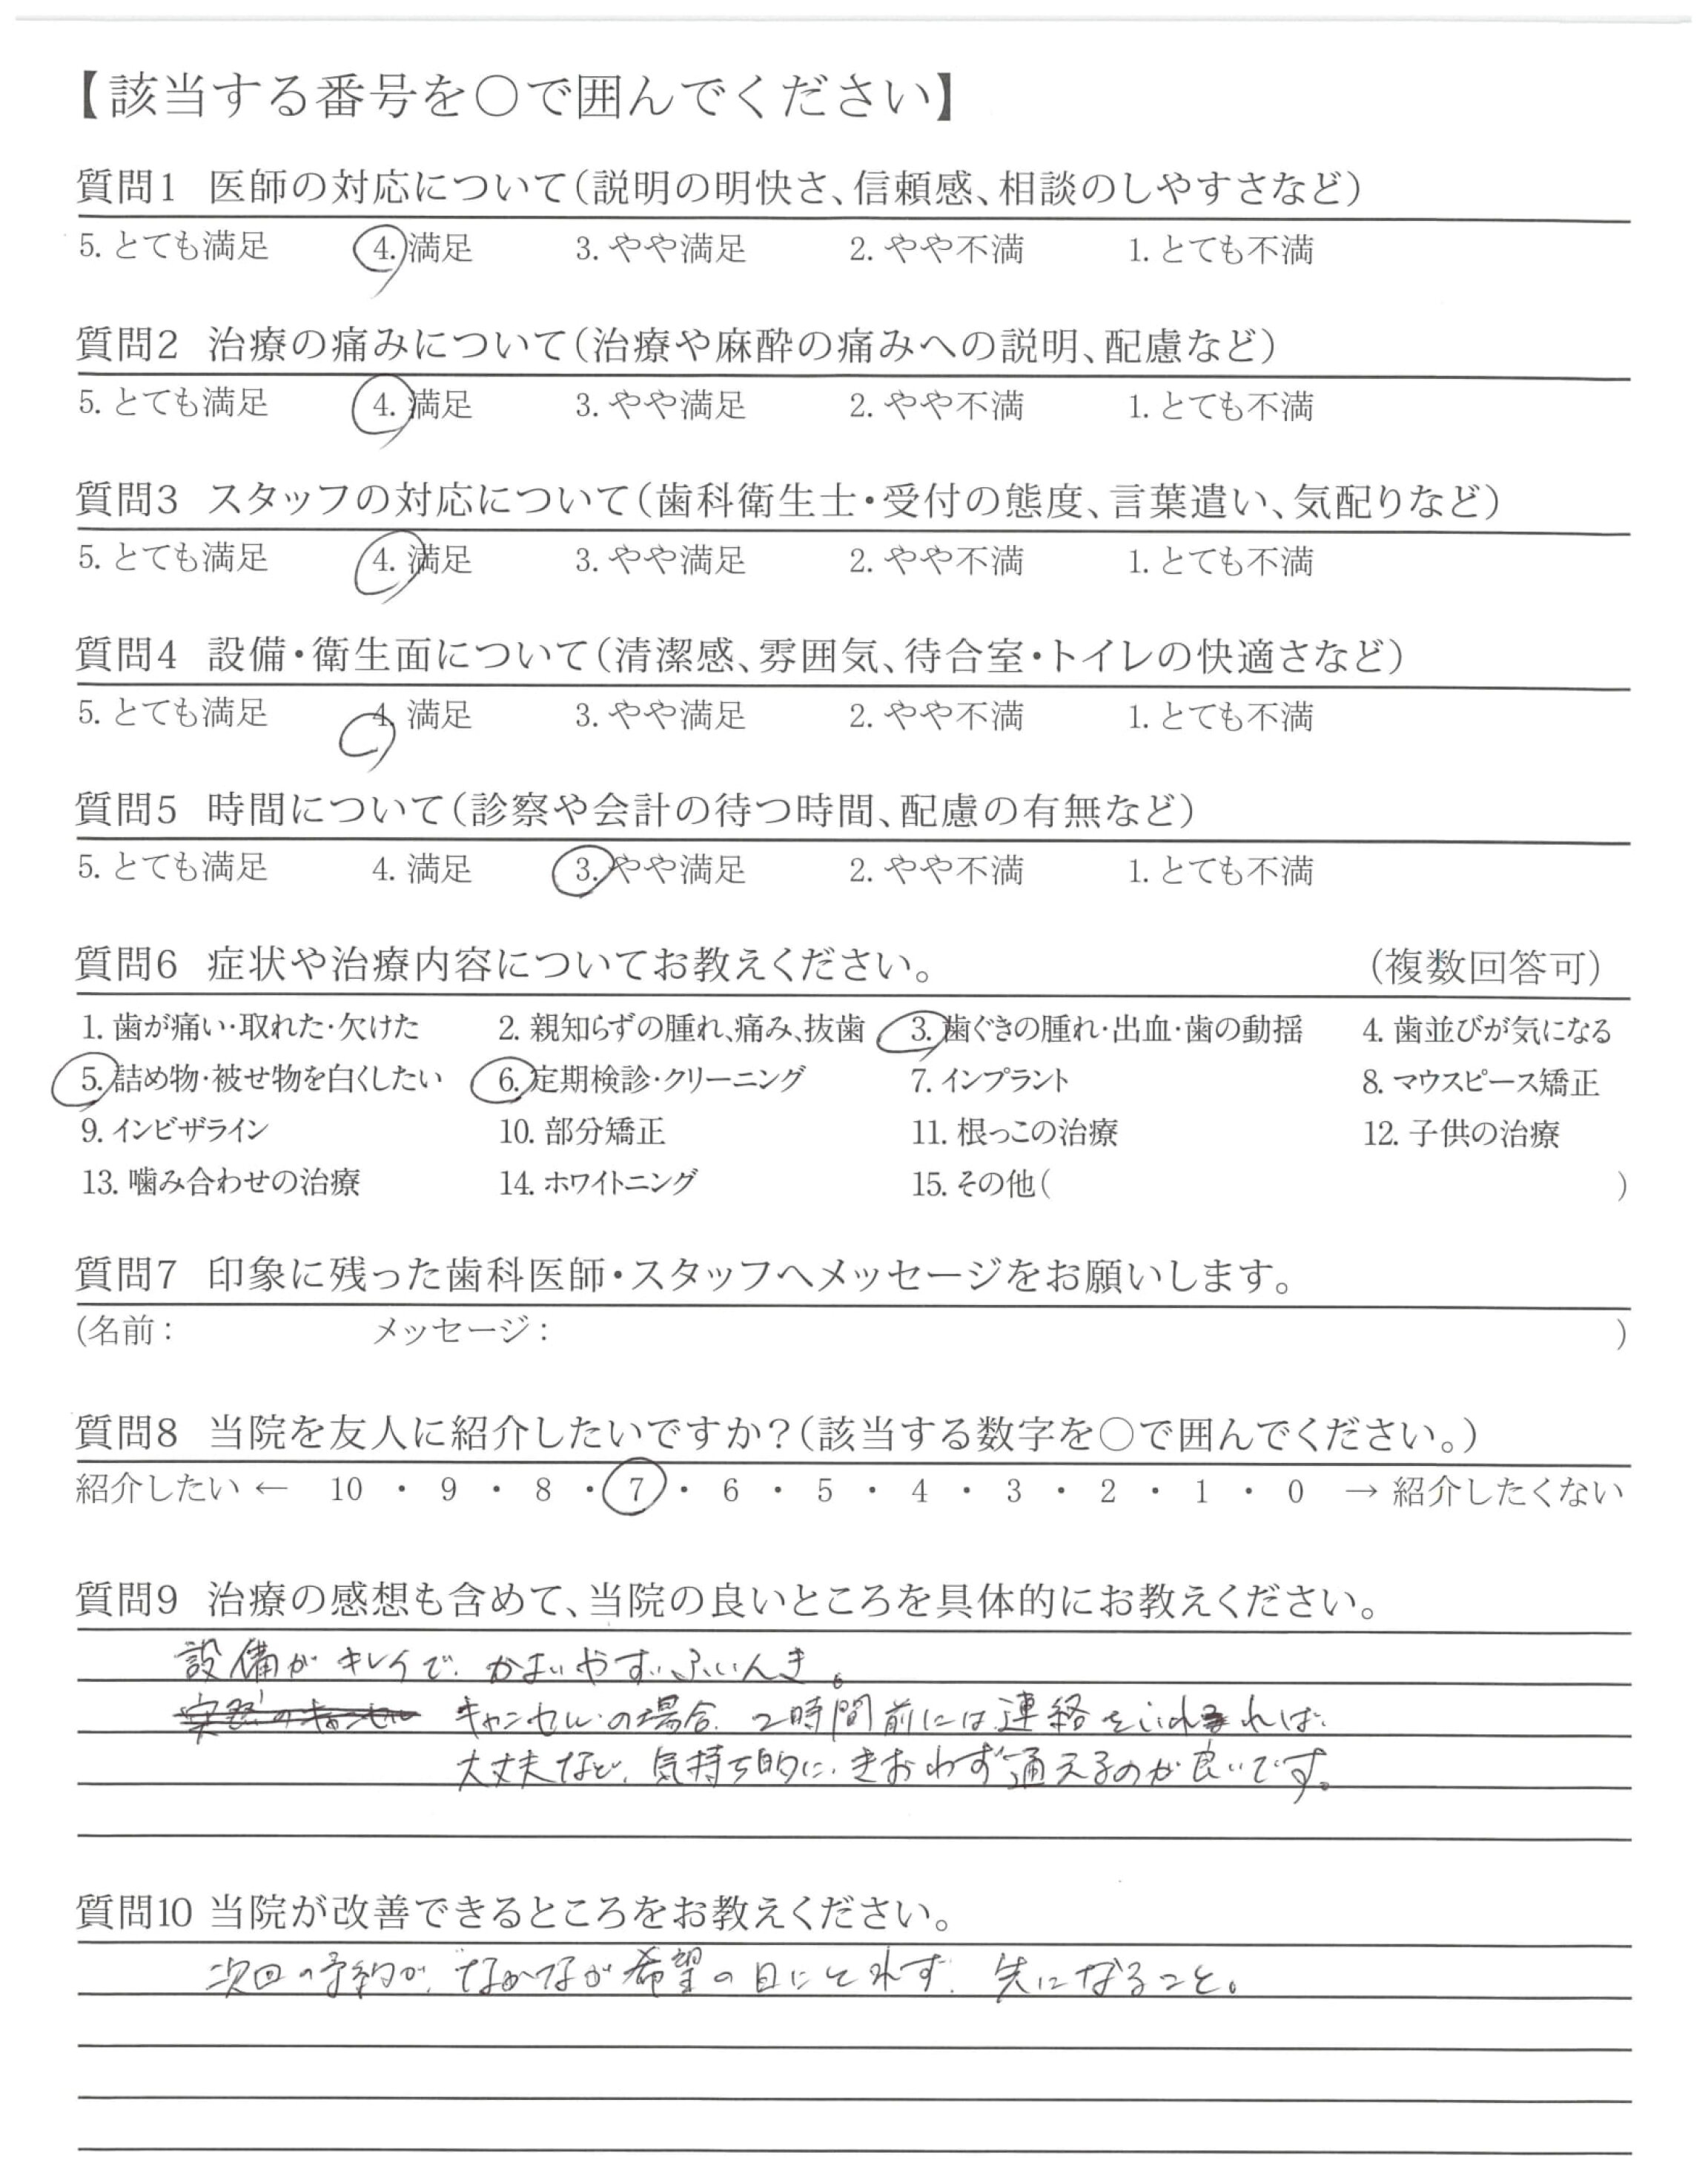 【該当する番号を○で囲んでください】
質問1 医師の対応について(説明の明快さ、信頼感、相談のしやすさなど)
5. とても満足 4. 満足 3. やや満足 2. やや不満 1. とても不満
質問2 治療の痛みについて(治療や麻酔の痛みへの説明、配慮など)
5. とても満足 4. 満足 3. やや満足 2. やや不満 1. とても不満
質問3 スタッフの対応について(歯科衛生士・受付の態度、言葉遣い、気配りなど)
5. とても満足 4. 満足 3. やや満足 2. やや不満 1. とても不満
質問4 設備・衛生面について(清潔感、雰囲気、待合室・トイレの快適さなど)
5. とても満足 4. 満足 3. やや満足 2. やや不満 1. とても不満
質問5 時間について(診察や会計の待つ時間、配慮の有無など)
5. とても満足 4. 満足 3. やや満足 2. やや不満 1. とても不満
質問6 症状や治療内容についてお教えください。 (複数回答可)
1. 歯が痛い・取れた・欠けた 2. 親知らずの腫れ、痛み、抜歯 3. 歯ぐきの腫れ・出血・歯の動揺 4. 歯並びが気になる
5. 詰め物・被せ物を白くしたい 6. 定期検診・クリーニング 7. インプラント 8. マウスピース矯正
9. インビザライン 10. 部分矯正 11. 根っこの治療 12. 子供の治療
13. 噛み合わせの治療 14. ホワイトニング 15. その他( )
質問7 印象に残った歯科医師・スタッフへメッセージをお願いします。
(名前: メッセージ: )
質問8 当院を友人に紹介したいですか?(該当する数字を○で囲んでください。)
紹介したい ← 10 ・ 9 ・ 8 ・ 7 ・ 6 ・ 5 ・ 4 ・ 3 ・ 2 ・ 1 ・ 0 → 紹介したくない
質問9 治療の感想も含めて、当院の良いところを具体的にお教えください。
設備がキレイで、かよいやすいふいんき。
キャンセルの場合、2時間前には連絡をいれれば、
大丈夫など、気持ち的に、きおわず通えるのが良いです。
質問10 当院が改善できるところをお教えください。
次回の予約が、なかなか希望の日にとれず、先になること。